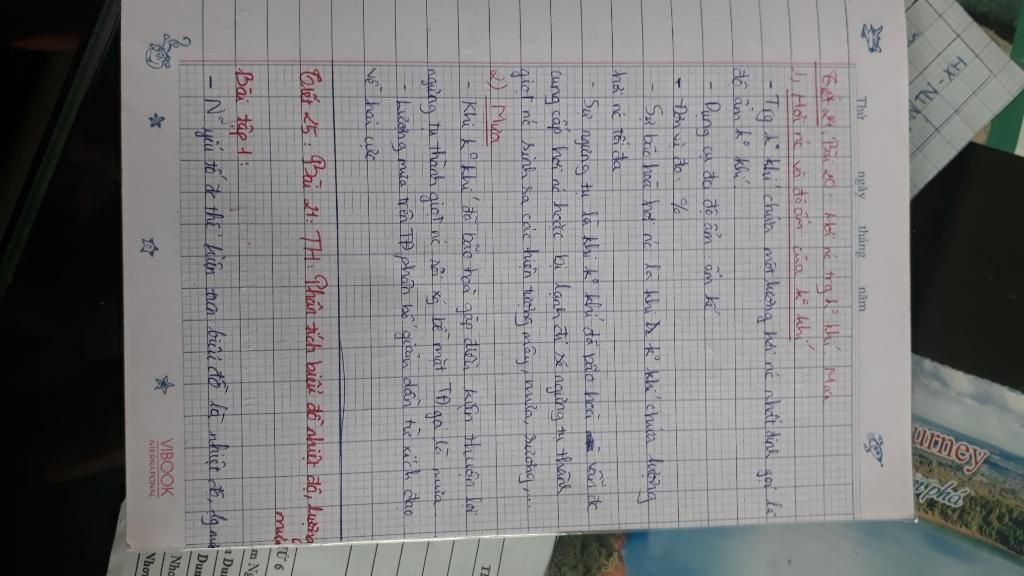 Thứ ngày tháng năm
Tiết 24, Bài 20 - Hơi nc trg kº khí. Mưa
1, Hơi nc và độ ẩm của kº khí
- Trg kº khí chứa một lượng hơi nc nhất định gọi là
độ ẩm kº khí.
- Dụng cụ đo độ ẩm: ẩm kế
- Đơn vị đo: %
- Sự bão hoà hơi nc là khi kº khí chứa lượng
hơi nc tối đa
- Sự ngưng tụ là khi kº khí đã bão hoà vẫn đc
cung cấp hơi nc hoặc bị lạnh đi sẽ ngưng tụ thành
giọt nc sinh ra các hiện tượng mây, mưa, sương,...
2) Mưa
- Khi kº khí đã bão hoà gặp điều kiện thuận lợi
ngưng tụ thành giọt nc rồi xg bề mặt TĐ gọi là mưa
- Lượng mưa trên TĐ phân bố giảm dần từ xích đạo
về hai cực
Tiết 25: Bài 21: TH: Phân tích biểu đồ nhiệt độ, lượng
mưa
Bài tập 1:
- Nº yếu tố đc thể hiện trên biểu đồ là nhiệt độ, lg mưa
VIBOOK
INTERNATIONAL
urney